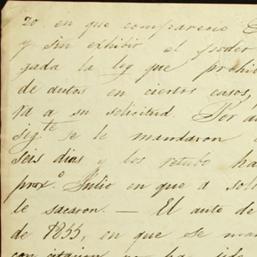 zo en que compareció
y sin exhibir el poder
gada la ley que prohibe
de autos en ciertos casos,
ta a su solicitud. Por au
sigte se le mandaron
seis dias y los retubo ha
proxo. Julio en que a soli
le sacaron. — El auto de
de 1855, en que se man
con citacion no ha sido